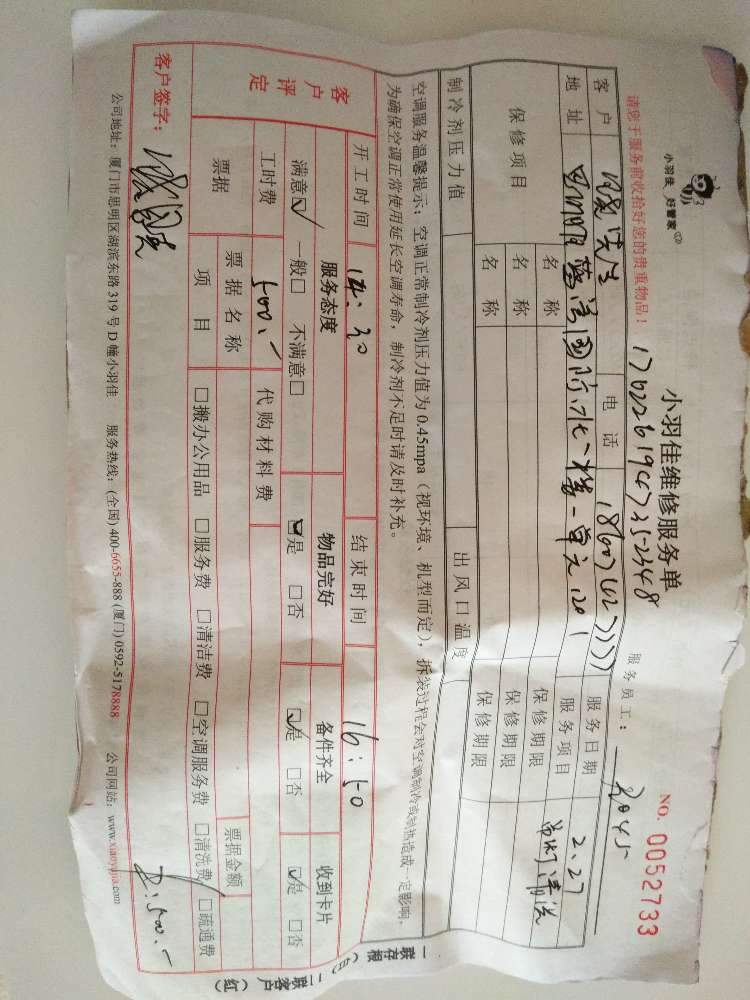 小羽佳 好管家
小羽佳维修服务单
NO. 0052733
请您于服务前收拾好您的贵重物品！
服务员工：
客户 电话 服务日期 2.27
地址 国际 一楼一单元1201 服务项目 清洗
保修项目 名称 保修期限
名称 保修期限
名称 保修期限
制冷剂压力值 出风口温度
空调服务温馨提示：空调正常制冷剂压力值为0.45mpa（视环境、机型而定），拆装过程会对空调制冷或制热造成一定影响，
为确保空调正常使用延长空调寿命，制冷剂不足时请及时补充。
开工时间 14：30 结束时间 16：50
客户评定 服务态度 物品完好 备件齐全 收到卡片
满意☑ 一般□ 不满意□ ☑是 □否 ☑是 □否 ☑是 □否
工时费 500.- 代购材料费
票据 票据名称 票据金额
项目 □搬办公用品 □服务费 □清洁费 □空调服务费 □清洗费 □疏通费
客户签字： 500.-
公司地址：厦门市思明区湖滨东路319号D幢小羽佳 服务热线：(全国) 400-6655-888 (厦门) 0592-5178888 公司网站：www.xiaoyujia.com
一联存根（白）二联客户（红）